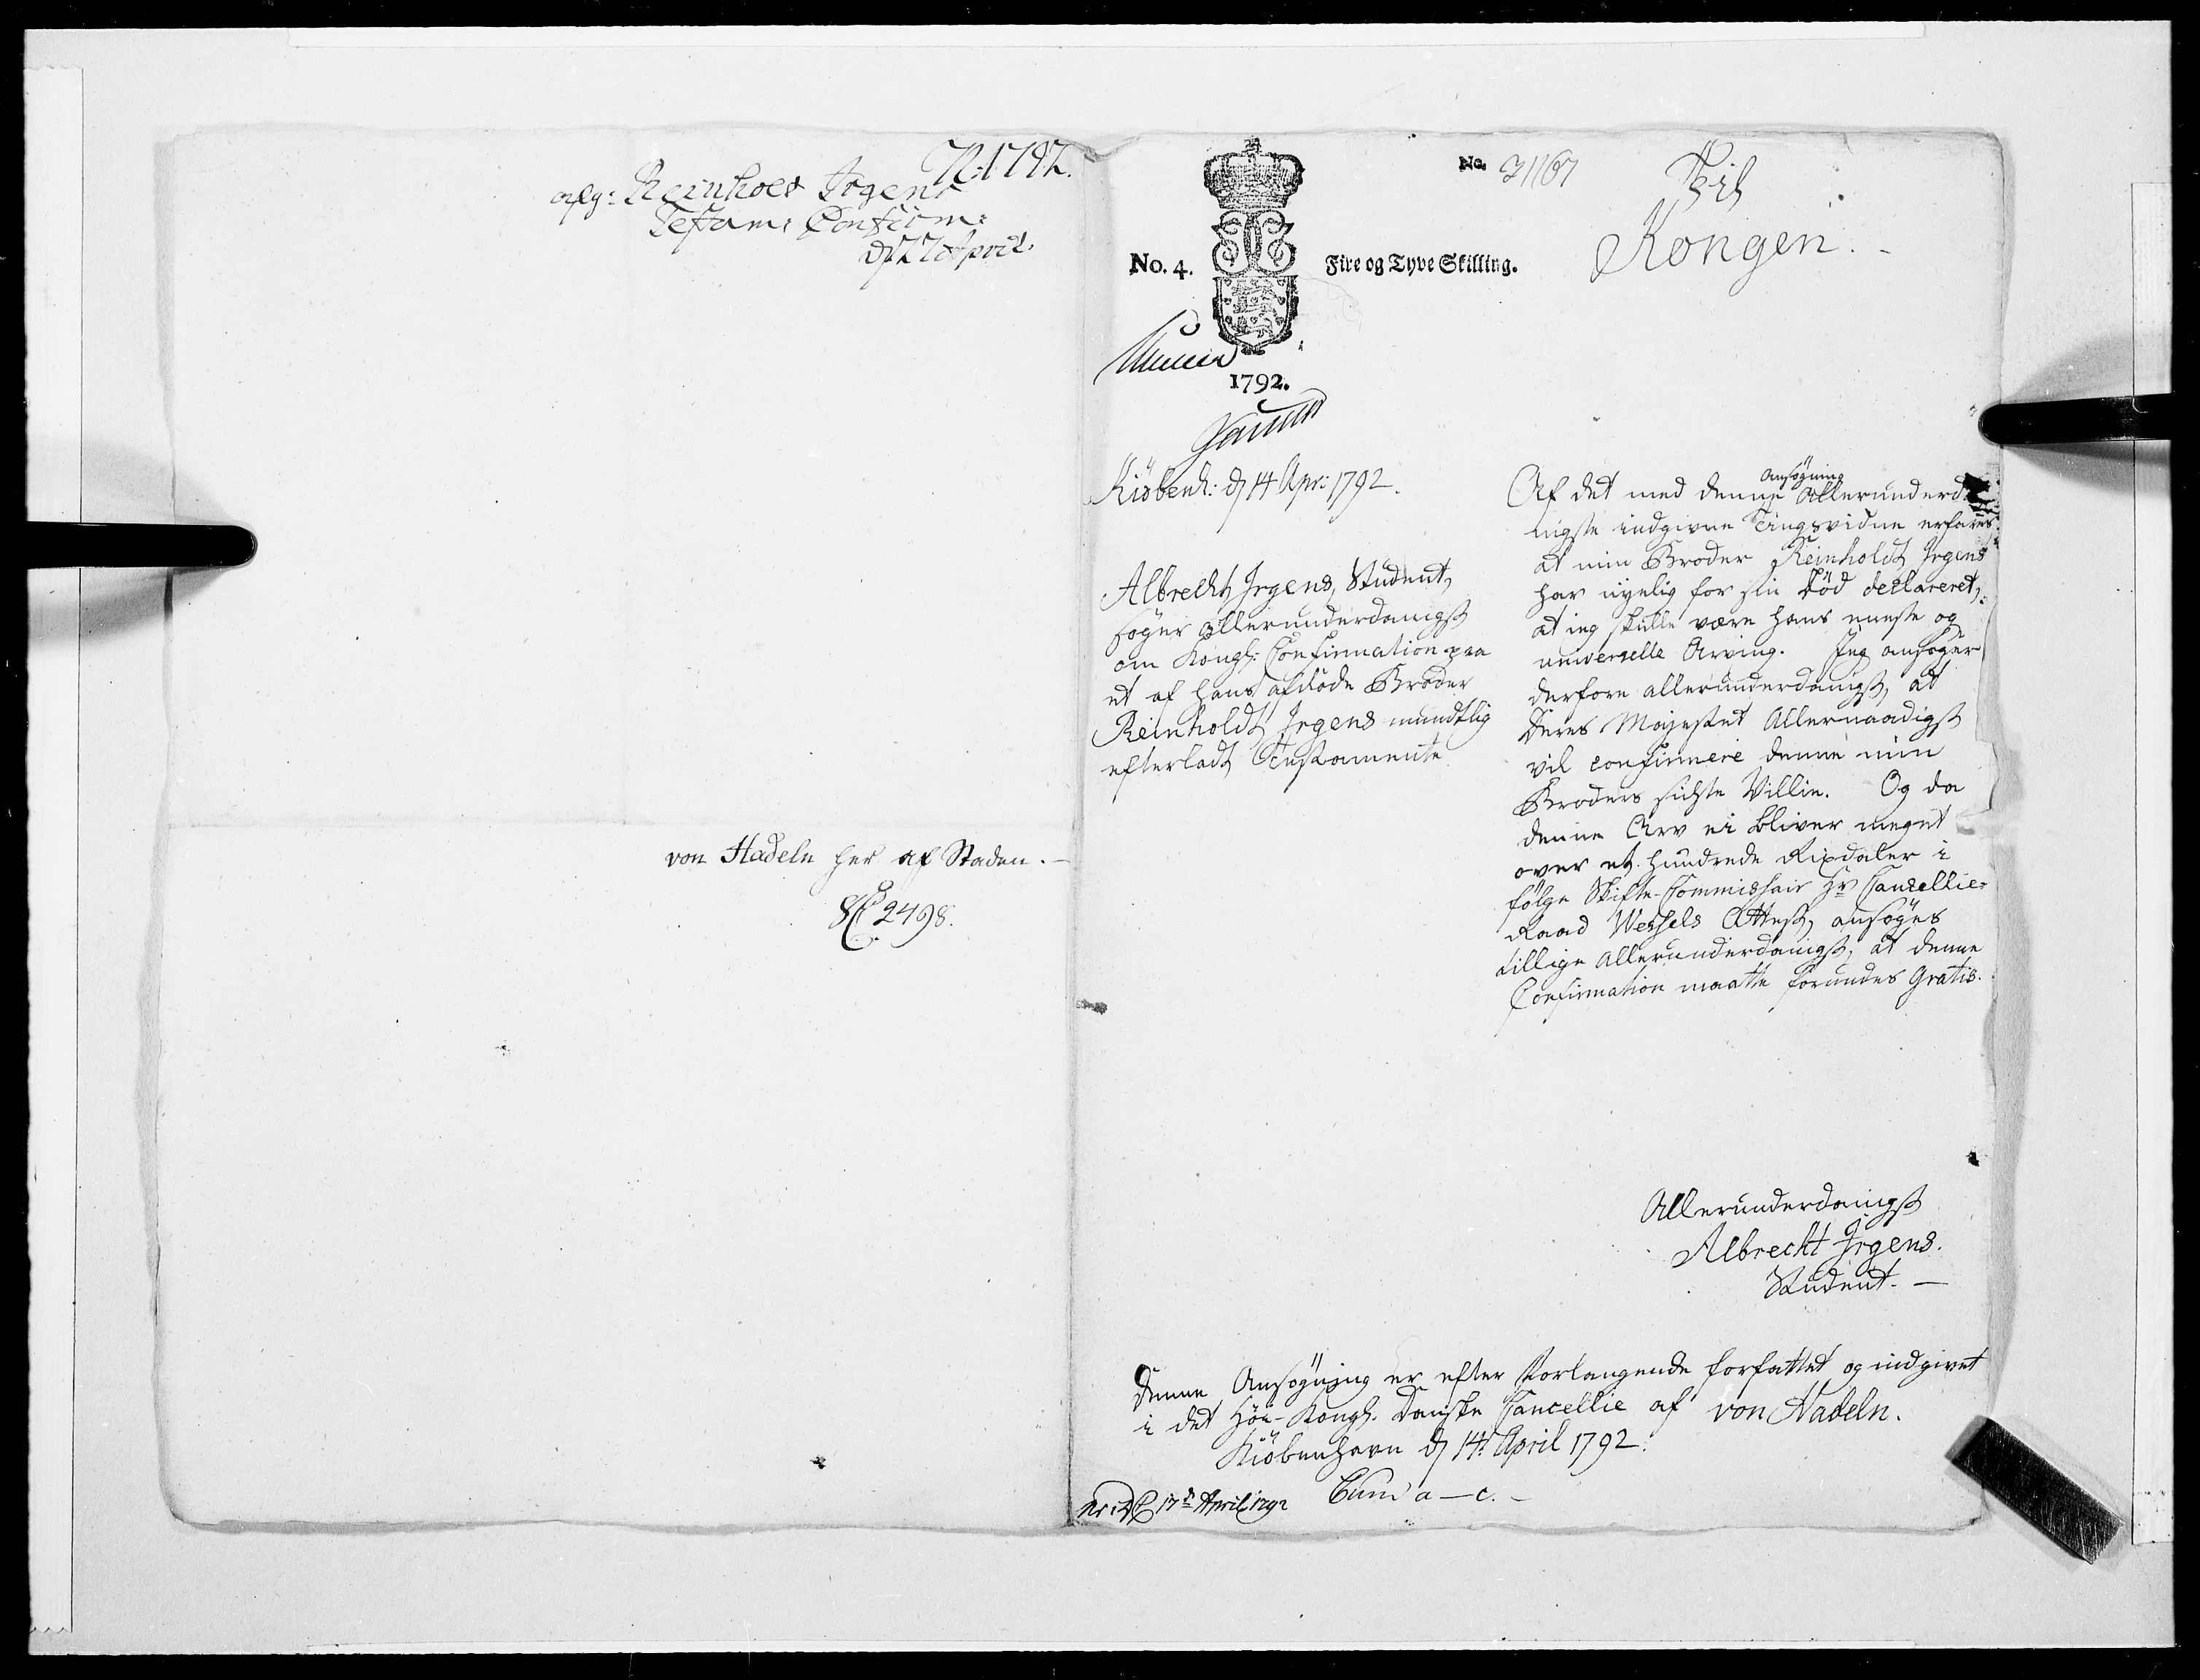 afg: Reinholdt Irgens
Testam: Confirm:
d 27 April
von Hadeln her af Staden. —
2498.
No.
Til
Kongen. -
No. 4.
Fire og Tyve Skilling.
1792.
Kiöbenh: d 14 Apr: 1792.
Albrecht Irgens, Student,
söger allerunderdanigst
om Kongl: Confirmation paa
et af hans afdöde Broder
Reinholdt Irgens mundtlig
efterladt Testamente
Ansøgning
Af det med denne Allerunderda-
nigste indgivne Tingsvidne erfares
at min Broder Reinholdt Irgens
har nyelig for sin Död declareret,
at ieg skulle være hans eneste og
universelle Arving. Jeg ansøger
derfore allerunderdanigst, at
Deres Majestet Allernaadigst
vil confirmere denne min
Broders sidste Villie. Og da
denne Arv ei bliver meget
over et hundrede Rixdaler i
følge Skifte-Commissair Hr Cancellie-
Raad Wessels Attest, ansøges
tillige Allerunderdanigst, at denne
Confirmation maatte forundes Gratis.
Allerunderdanigst
Albrecht Irgens.
Student. —
Denne Ansøgning er efter Forlangende forfattet og indgivet
i det Höi-Kongl. Danske Cancellie af von Hadeln.
Kiöbenhavn d 14 April 1792.
17 April 1792
Cum a — c. -